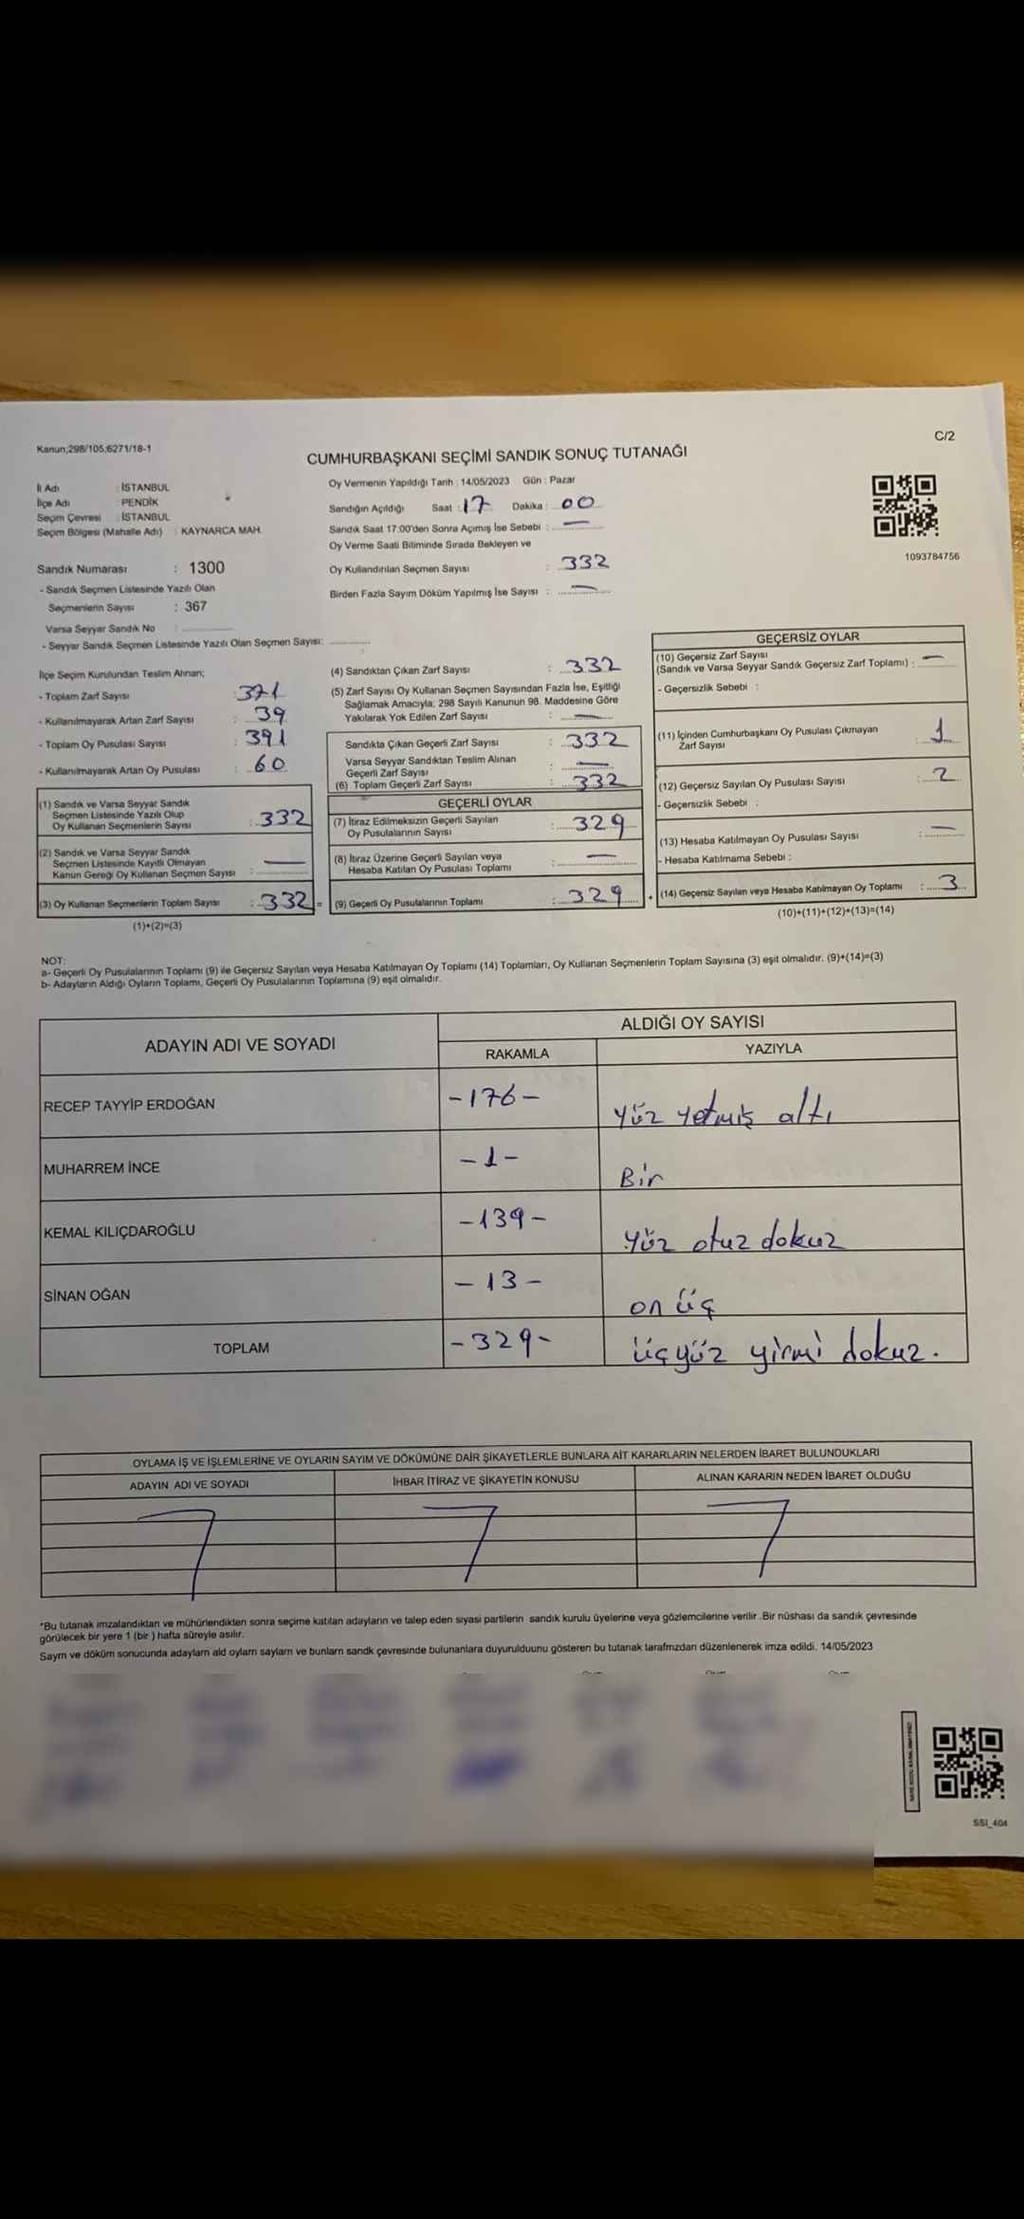 Kanun;298/105;6271/18-1
C/2
CUMHURBAŞKANI SEÇİMİ SANDIK SONUÇ TUTANAĞI
İl Adı : İSTANBUL
İlçe Adı : PENDİK
Seçim Çevresi : İSTANBUL
Seçim Bölgesi (Mahalle Adı) : KAYNARCA MAH.
Sandık Numarası : 1300
- Sandık Seçmen Listesinde Yazılı Olan
Seçmenlerin Sayısı : 367
Varsa Seyyar Sandık No :
- Seyyar Sandık Seçmen Listesinde Yazılı Olan Seçmen Sayısı:
Oy Vermenin Yapıldığı Tarih : 14/05/2023 Gün : Pazar
Sandığın Açıldığı Saat : 17 Dakika : 00
Sandık Saat 17:00'den Sonra Açımış İse Sebebi : —
Oy Verme Saati Bitiminde Sırada Bekleyen ve
Oy Kullandırılan Seçmen Sayısı : 332
Birden Fazla Sayım Döküm Yapılmış İse Sayısı : —
1093784756
İlçe Seçim Kurulundan Teslim Alınan;
- Toplam Zarf Sayısı : 371
- Kullanılmayarak Artan Zarf Sayısı : 39
- Toplam Oy Pusulası Sayısı : 391
- Kullanılmayarak Artan Oy Pusulası : 60
(1) Sandık ve Varsa Seyyar Sandık
Seçmen Listesinde Yazılı Olup
Oy Kullanan Seçmenlerin Sayısı : 332
(2) Sandık ve Varsa Seyyar Sandık
Seçmen Listesinde Kayıtlı Olmayan
Kanun Gereği Oy Kullanan Seçmen Sayısı : —
(3) Oy Kullanan Seçmenlerin Toplam Sayısı : 332 =
(1)+(2)=(3)
(4) Sandıktan Çıkan Zarf Sayısı : 332
(5) Zarf Sayısı Oy Kullanan Seçmen Sayısından Fazla İse, Eşitliği
Sağlamak Amacıyla; 298 Sayılı Kanunun 98. Maddesine Göre
Yakılarak Yok Edilen Zarf Sayısı : —
Sandıkta Çıkan Geçerli Zarf Sayısı : 332
Varsa Seyyar Sandıktan Teslim Alınan
Geçerli Zarf Sayısı : —
(6) Toplam Geçerli Zarf Sayısı : 332
GEÇERLİ OYLAR
(7) İtiraz Edilmeksizin Geçerli Sayılan
Oy Pusulalarının Sayısı : 329
(8) İtiraz Üzerine Geçerli Sayılan veya
Hesaba Katılan Oy Pusulası Toplamı : —
(9) Geçerli Oy Pusulalarının Toplamı : 329 +
GEÇERSİZ OYLAR
(10) Geçersiz Zarf Sayısı
(Sandık ve Varsa Seyyar Sandık Geçersiz Zarf Toplamı) : —
- Geçersizlik Sebebi :
(11) İçinden Cumhurbaşkanı Oy Pusulası Çıkmayan
Zarf Sayısı : 1
(12) Geçersiz Sayılan Oy Pusulası Sayısı : 2
- Geçersizlik Sebebi :
(13) Hesaba Katılmayan Oy Pusulası Sayısı : —
- Hesaba Katılmama Sebebi :
(14) Geçersiz Sayılan veya Hesaba Katılmayan Oy Toplamı : 3
(10)+(11)+(12)+(13)=(14)
NOT:
a- Geçerli Oy Pusulalarının Toplamı (9) ile Geçersiz Sayılan veya Hesaba Katılmayan Oy Toplamı (14) Toplamları, Oy Kullanan Seçmenlerin Toplam Sayısına (3) eşit olmalıdır. (9)+(14)=(3)
b- Adayların Aldığı Oyların Toplamı, Geçerli Oy Pusulalarının Toplamına (9) eşit olmalıdır.
ADAYIN ADI VE SOYADI
ALDIĞI OY SAYISI
RAKAMLA YAZIYLA
RECEP TAYYİP ERDOĞAN -176- Yüz yetmiş altı
MUHARREM İNCE -1- Bir
KEMAL KILIÇDAROĞLU -139- Yüz otuz dokuz
SİNAN OĞAN -13- on üç
TOPLAM -329- üçyüz yirmi dokuz.
OYLAMA İŞ VE İŞLEMLERİNE VE OYLARIN SAYIM VE DÖKÜMÜNE DAİR ŞİKAYETLERLE BUNLARA AİT KARARLARIN NELERDEN İBARET BULUNDUKLARI
ADAYIN ADI VE SOYADI İHBAR İTİRAZ VE ŞİKAYETİN KONUSU ALINAN KARARIN NEDEN İBARET OLDUĞU
*Bu tutanak imzalandıktan ve mühürlendikten sonra seçime katılan adayların ve talep eden siyasi partilerin sandık kurulu üyelerine veya gözlemcilerine verilir. Bir nüshası da sandık çevresinde
görülecek bir yere 1 (bir ) hafta süreyle asılır.
Saym ve döküm sonucunda adaylarn ald oylarn saylarn ve bunlarn sandk çevresinde bulunanlara duyurulduunu gösteren bu tutanak tarafmzdan düzenlenerek imza edildi. 14/05/2023
SSI_404